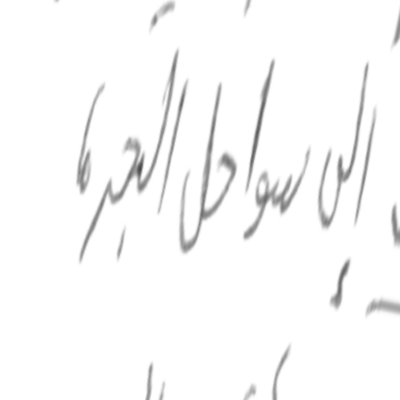 إلى سواحل البحيرة